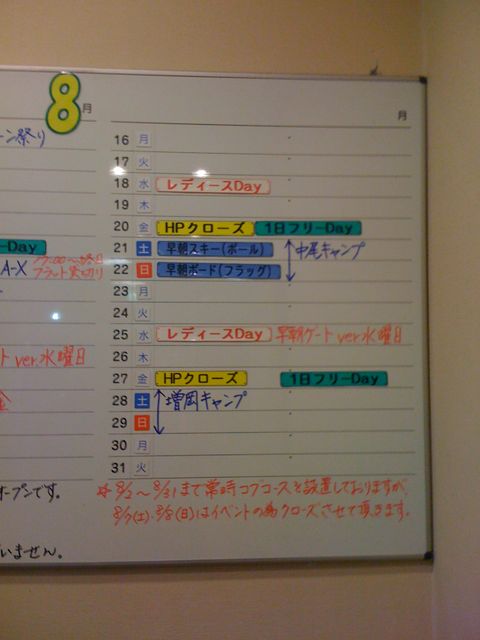 8月
月
ーン祭り
16 月
17 火
18 水 レディースDay
19 木
20 金 HPクローズ 1日フリーDay
ーDay 21 土 早朝スキー(ポール) 中尾キャンプ
A-X 17:00〜終日 フラット貸切り 22 日 早朝ボード(フラッグ)
23 月
24 火
25 水 レディースDay 早朝ゲート ver.水曜日
ト ver.水曜日 26 木
27 金 HPクローズ 1日フリーDay
28 土 増岡キャンプ
29 日
30 月
31 火
オープンです。 ☆8/2〜8/31まで常時コブコースを設置しておりますが、
8/7(土)・8/8(日)はイベントの為クローズさせて頂きます。
いません。